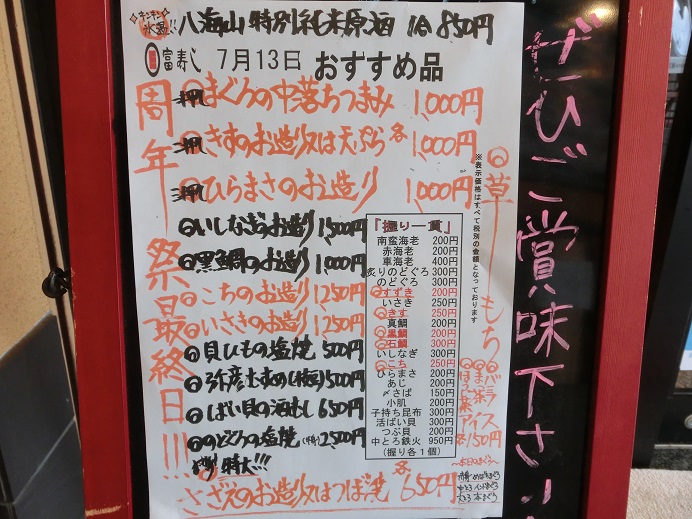 キンキン氷温!! 八海山 特別純米原酒 1合 850円
富寿し 7月13日 おすすめ品
周年祭最終日!!!
押 まぐろの中落ちつまみ 1,000円
押 きすのお造り又は天ぷら 各 1,000円
押 ひらまさのお造り 1,000円
いしなぎのお造り 1,500円
黒鯛のお造り 1,000円
こちのお造り 1,250円
いさきのお造り 1,250円
貝ひもの塩焼 500円
ばい貝の酒むし 650円
のどぐろの塩焼 2,500円
特大!!!
さざえのお造り又はつぼ焼 各 650円
『握り一貫』
南蛮海老 200円
赤海老 200円
車海老 400円
炙りのどぐろ 300円
のどぐろ 300円
すずき 200円
いさき 250円
きす 250円
真鯛 200円
黒鯛 200円
石鯛 300円
いしなぎ 300円
こち 250円
ひらまさ 200円
あじ 200円
〆さば 150円
小肌 200円
子持ち昆布 300円
活ばい貝 300円
つぶ貝 200円
中とろ鉄火 950円
(握り各1個)
※表示価格はすべて税別の金額となっております
草もち
バニラアイス
各150円
〜本日のまぐろ〜
ぜひご賞味下さい